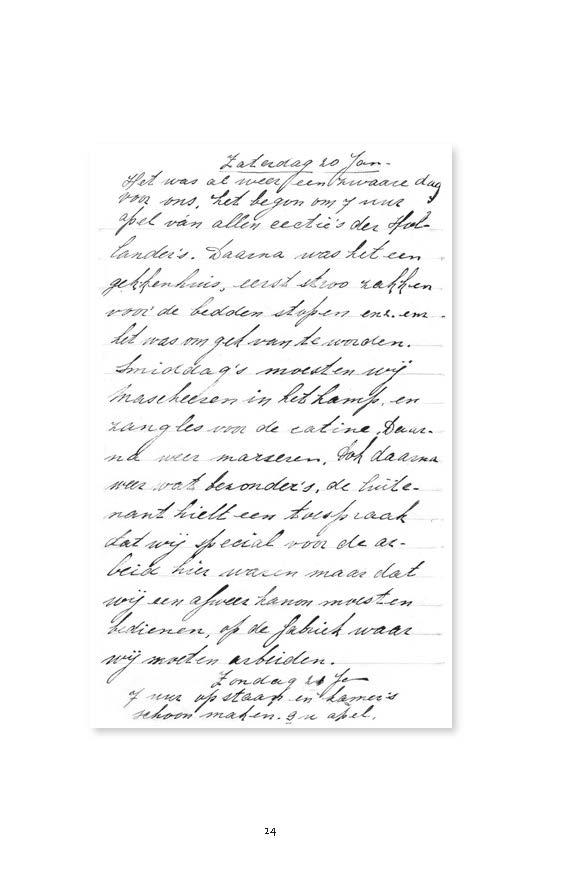 Zaterdag 20 Jan-
Het was al weer een zwaare dag
voor ons, het begon om 7 uur
apel van allen eectie's der Hol-
lander's. Daarna was het een
gekkenhuis, eerst stroo zakken
voor de bedden stopen enz. enz.
het was om gek van te worden.
Smiddag's moesten wij
Mascheeren in het kamp, en
zangles voor de catine. Daar-
na weer marseren. Ook daarna
weer wat bezonder's, de luite-
nant hielt een toespraak
dat wij special voor de ar-
beid hier waren maar dat
wij een afweer kanon moesten
bedienen, op de fabriek waar
wij moeten arbeiden.
Zondag 21 Ja
7 uur opstaan en kamer's
schoon maken. 9 u apel.
24